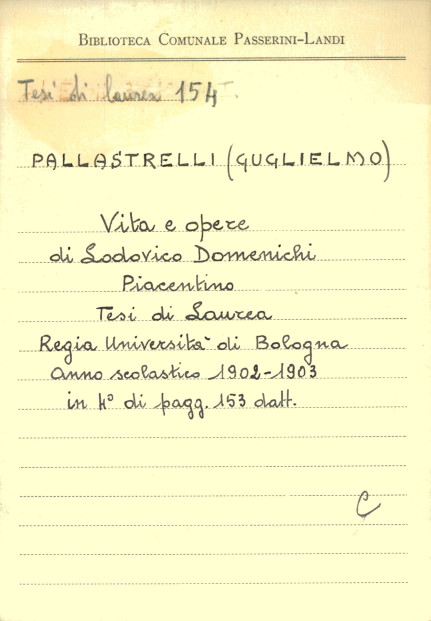 BIBLIOTECA COMUNALE PASSERINI-LANDI
Tesi di laurea 154
PALLASTRELLI (GUGLIELMO)
Vita e opere
di Lodovico Domenichi
Piacentino
Tesi di Laurea
Regia Università di Bologna
Anno scolastico 1902-1903
in 4º di pagg. 153 datt.
C